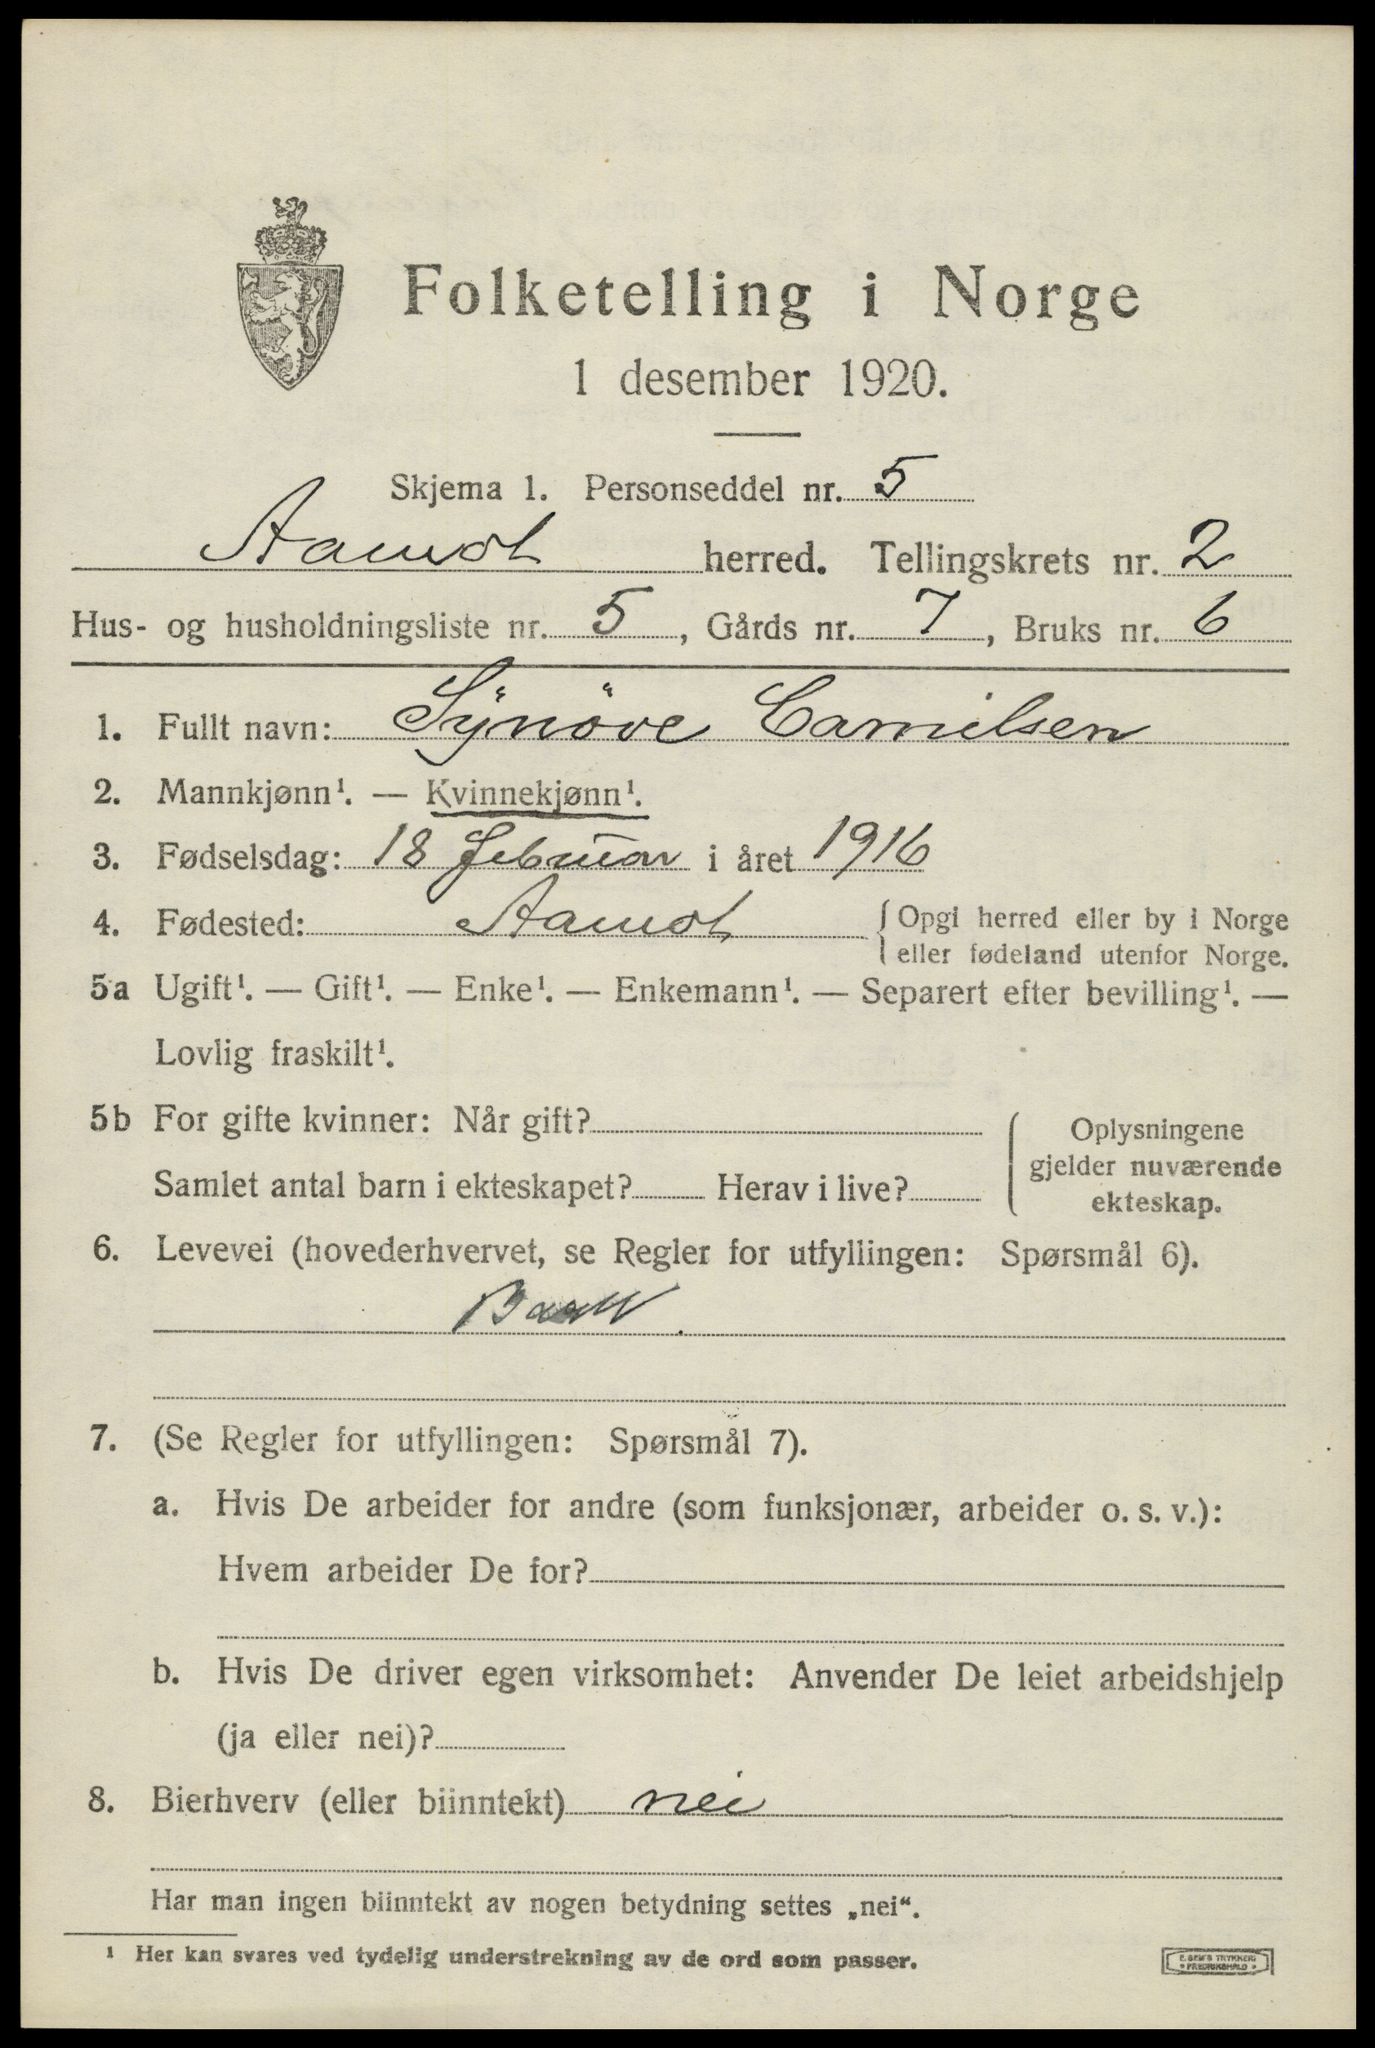 Folketelling i Norge
1 desember 1920.
Skjema 1. Personseddel nr. 5
Aamot herred. Tellingskrets nr. 2
Hus- og husholdningsliste nr. 5, Gårds nr. 7, Bruks nr. 6
1. Fullt navn: Synöve Camilsen
2. Mannkjønn¹. — Kvinnekjønn¹.
3. Fødselsdag: 18 februar i året 1916
4. Fødested: Aamot { Opgi herred eller by i Norge
eller fødeland utenfor Norge.
5a Ugift¹. — Gift¹. — Enke¹. — Enkemann¹. — Separert efter bevilling¹. —
Lovlig fraskilt¹.
5b For gifte kvinner: Når gift?
Samlet antal barn i ekteskapet? Herav i live?
Oplysningene
gjelder nuværende
ekteskap.
6. Levevei (hovederhvervet, se Regler for utfyllingen: Spørsmål 6).
7. (Se Regler for utfyllingen: Spørsmål 7).
a. Hvis De arbeider for andre (som funksjonær, arbeider o. s. v.):
Hvem arbeider De for?
b. Hvis De driver egen virksomhet: Anvender De leiet arbeidshjelp
(ja eller nei)?
8. Bierhverv (eller biinntekt) nei
Har man ingen biinntekt av nogen betydning settes „nei“.
¹ Her kan svares ved tydelig understrekning av de ord som passer.
E. SEM'S TRYKKERI
• FREDRIKSHALD •